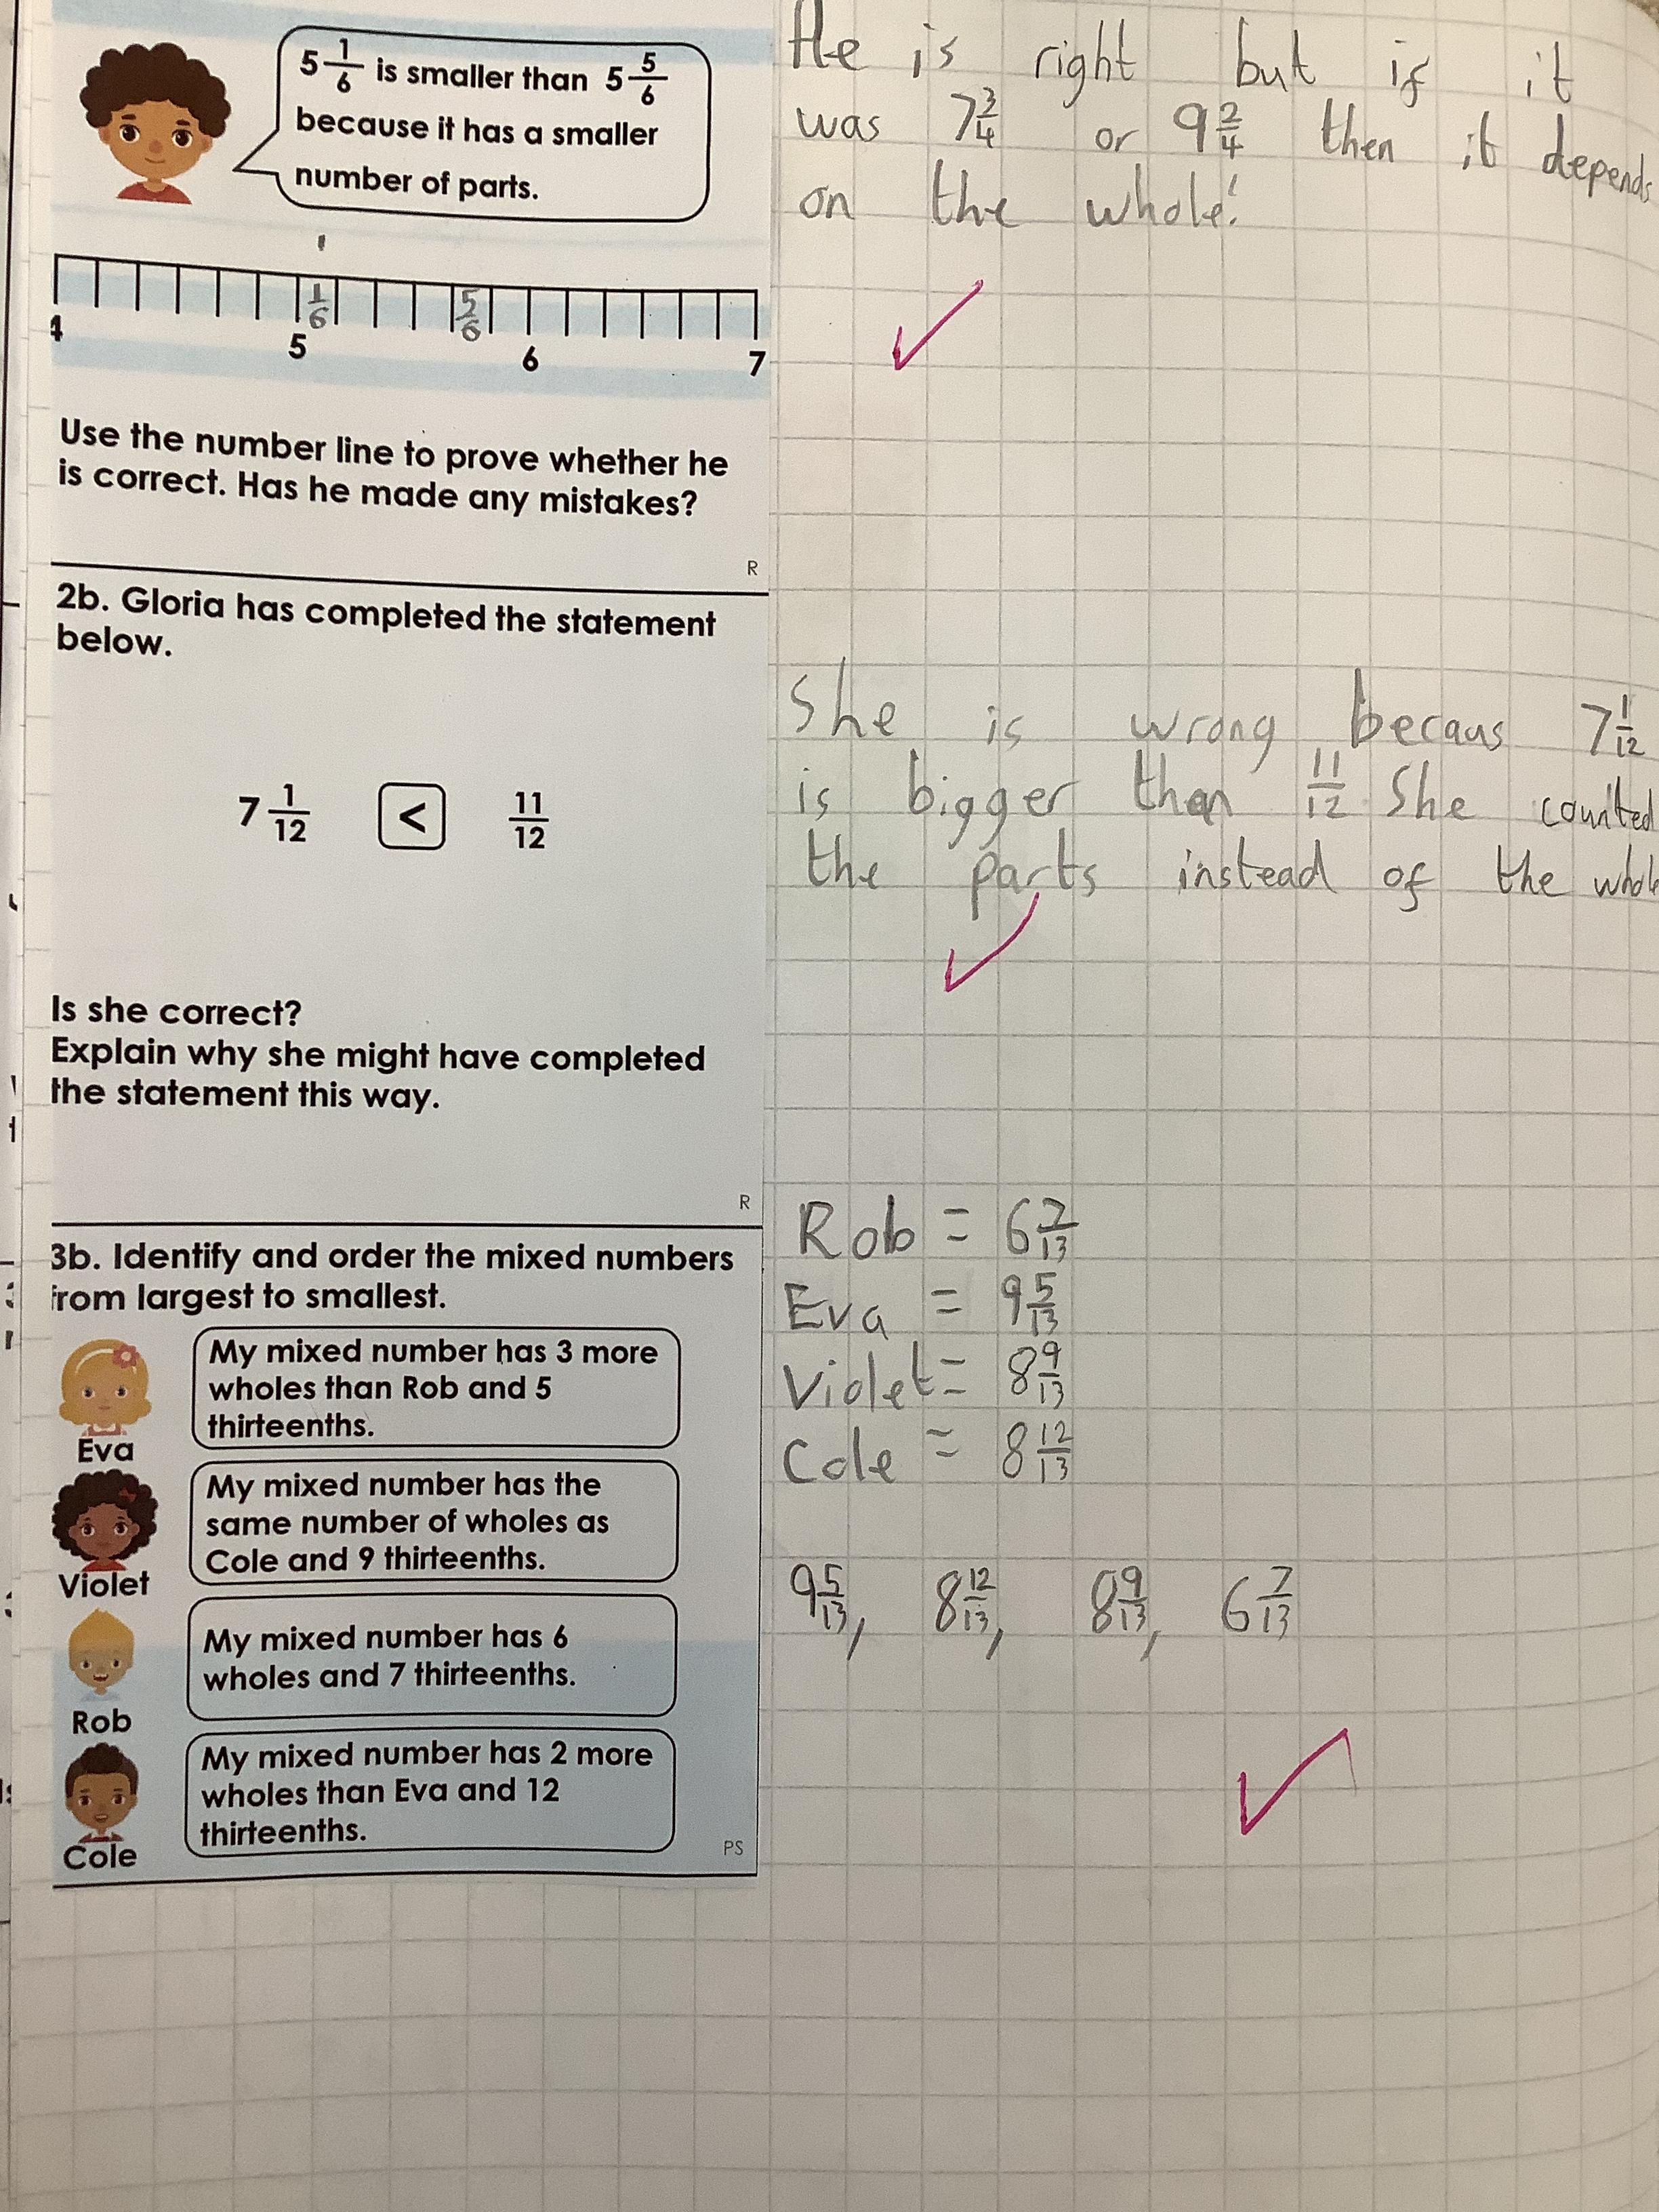 5 1/6 is smaller than 5 5/6
because it has a smaller
number of parts.
1/6 5/6
4 5 6 7
Use the number line to prove whether he
is correct. Has he made any mistakes?
R
He is right but if it
was 7 3/4 or 9 2/4 then it depends
on the whole!
2b. Gloria has completed the statement
below.
7 1/12 < 11/12
Is she correct?
Explain why she might have completed
the statement this way.
R
She is wrong becaus 7 1/12
is bigger than 11/12 She counted
the parts instead of the whole
3b. Identify and order the mixed numbers
from largest to smallest.
My mixed number has 3 more
wholes than Rob and 5
thirteenths.
Eva
My mixed number has the
same number of wholes as
Cole and 9 thirteenths.
Violet
My mixed number has 6
wholes and 7 thirteenths.
Rob
My mixed number has 2 more
wholes than Eva and 12
thirteenths.
Cole
PS
Rob = 6 7/13
Eva = 9 5/13
Violet = 8 9/13
Cole = 8 12/13
9 5/13, 8 12/13, 8 9/13, 6 7/13